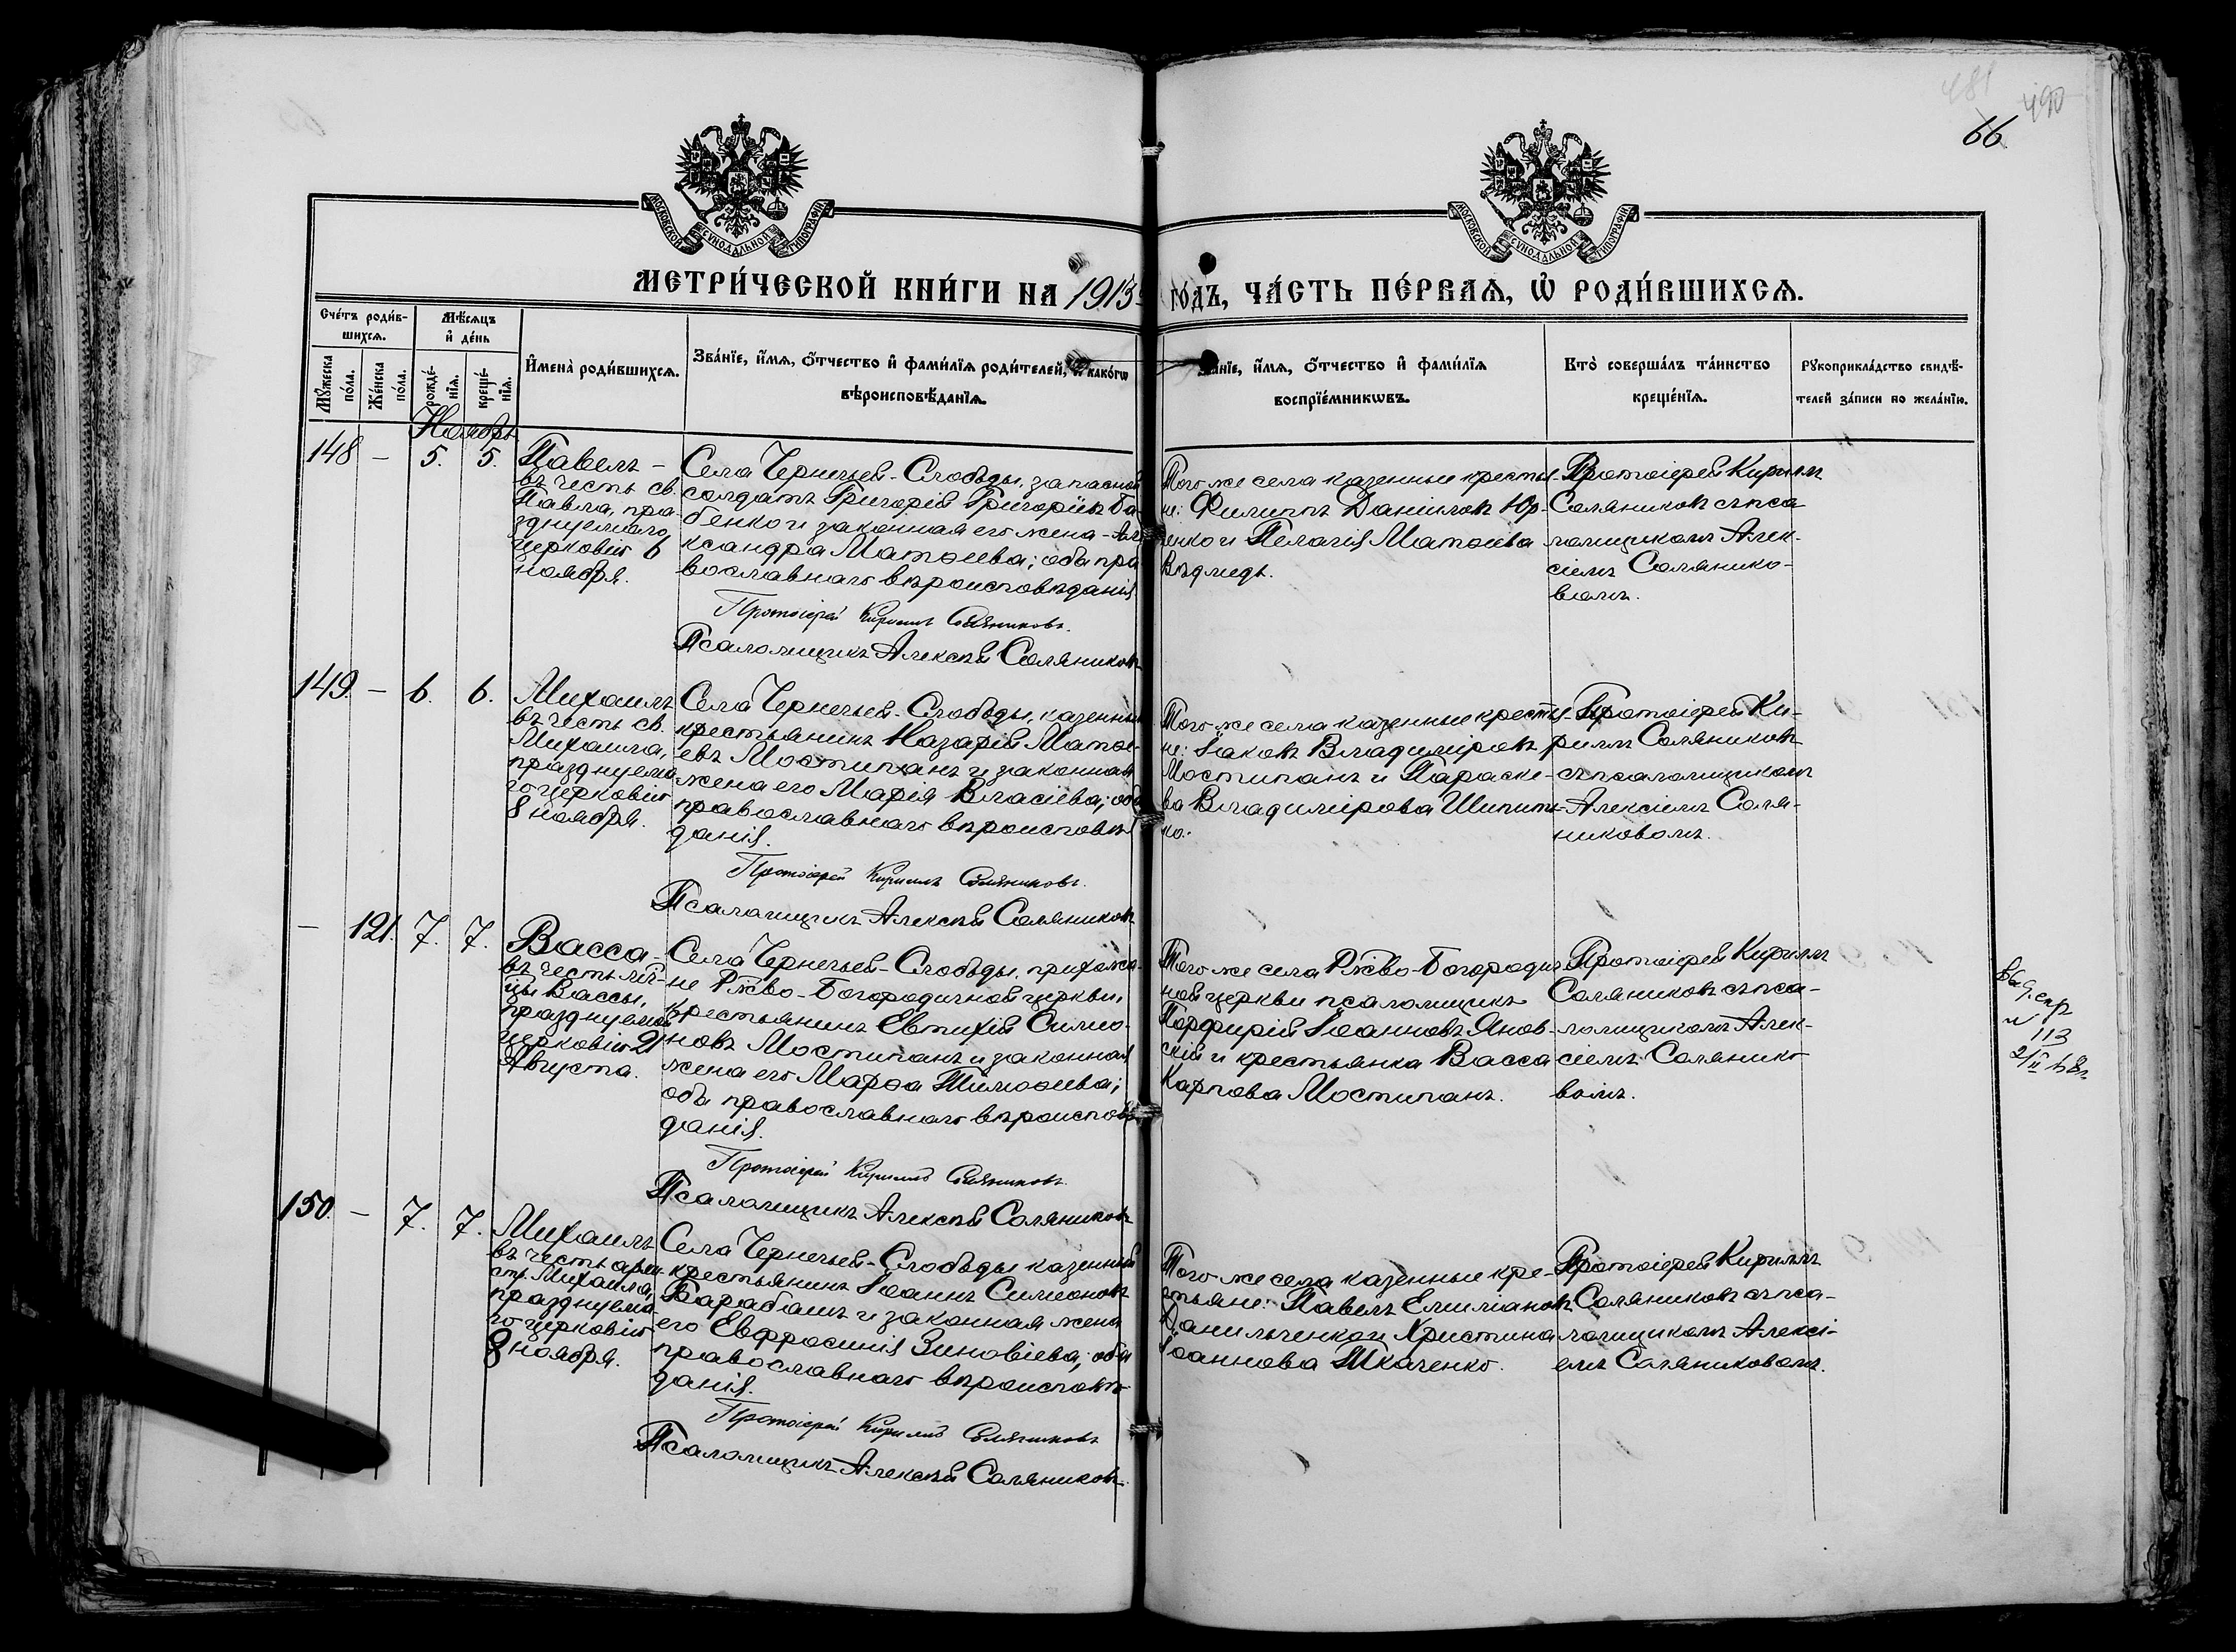 481
490
66
МОСКОВСКОЙ СѴНОДАЛЬНОЙ ТИПОГРАФІИ
МОСКОВСКОЙ СѴНОДАЛЬНОЙ ТИПОГРАФІИ
МЕТРИ́ЧЕСКОЙ КНИ́ГИ НА 1913 ГО́ДЪ, ЧА́СТЬ ПЕ́РВАѦ, Ѡ҆ РОДИ́ВШИХСѦ.
Сче́тъ роди́в-
шихсѧ.
Мꙋ́жеска
по́ла.
Же́нска
по́ла.
Мѣ́сѧцъ
и҆ де́нь
рожде́-
нїѧ.
креще́-
нїѧ.
И҆мена̀ роди́вшихсѧ.
Зва́нїе, и҆́мѧ, ѻ҆́тчество и҆ фами́лїѧ роди́телей, и҆ како́гѡ
вѣроисповѣ́данїѧ.
и҆́мѧ, ѻ҆́тчество и҆ фами́лїѧ
воспрїе́мникѡвъ.
Кто̀ соверша́лъ та́инство
креще́нїѧ.
Рꙋкоприкла́дство свидѣ́-
телей за́писи по жела́нїю.
Ноябрь
148 — 5. 5.
Павелъ —
въ честь св.
Павла, пра-
зднуемаго
церковію 6
ноября.
Села Чернечьей-Слободы, запасной
солдатъ Григорій Григоріевъ Ба-
бенко и законная его жена - Але
ксандра Матѳеева; оба пра
вославнаго вѣроисповѣданія.
Протоіерей Кириллъ Соляниковъ.
Псаломщикъ Алексѣй Соляниковъ
Того же села казенные крестья-
не: Филиппъ Даніиловъ Юр-
ченко и Пелагія Матѳеева
Вѣдмедь.
Протоіерей Кириллъ
Соляниковъ съ пса
ломщикомъ Алек-
сіемъ Солянико-
вымъ.
149. — 6. 6.
Михаилъ
въ честь св.
Михаила,
празднуема
го церковію
8 ноября.
Села Чернечьей-Слободы, казенный
крестьянинъ Назарій Матѳе-
евъ Мостипанъ и законная
жена его Марія Власіева; оба
православнаго вѣроисповѣ
данія.
Протоіерей Кириллъ Соляниковъ.
Псаломщикъ Алексѣй Соляниковъ
Того же села казенные крестья-
не: Іаковъ Владиміровъ
Мостипанъ и Параске-
ва Владимірова Шипить-
ко.
Протоіерей Ки-
риллъ Соляниковъ
съ псаломщикомъ
Алексіемъ Соля-
никовомъ.
— 121. 7. 7.
Васса —
въ честь мч-
цы Вассы,
празднуемой
церковію 21
Августа.
Села Чернечьей-Слободы, прихожа-
не Рж̃во-Богородичной церкви,
крестьянинъ Евтихій Симео-
новъ Мостипанъ и законная
жена его Марѳа Тимоѳеева;
оба православнаго вѣроисповѣ
данія.
Протоіерей Кириллъ Соляниковъ.
Псаломщикъ Алексѣй Соляниковъ
Того же села Рж̃во-Богородич
ной церкви псаломщикъ
Порфирій Іоанновъ Янов-
скій и крестьянка Васса
Карпова Мостипанъ.
Протоіерей Кириллъ
Соляниковъ съ пса-
ломщикомъ Алек-
сіемъ Солянико
вымъ.
113
150. — 7. 7.
Михаилъ
въ честь архи-
стр. Михаила,
празднуема-
го церковію
8 ноября.
Села Чернечьей-Слободы казенный
крестьянинъ Іоаннъ Симеоновъ
Барабашъ и законная жена
его Евфросинія Зиновіева; оба
православнаго вѣроисповѣ-
данія.
Протоіерей Кириллъ Соляниковъ
Псаломщикъ Алексѣй Соляниковъ
Того же села казенные кре-
стьяне: Павелъ Емиліановъ
Данильченко и Христина
Іоаннова Ткаченко.
Протоіерей Кириллъ
Соляниковъ съ пса-
ломщикомъ Алексі-
емъ Соляниковомъ.